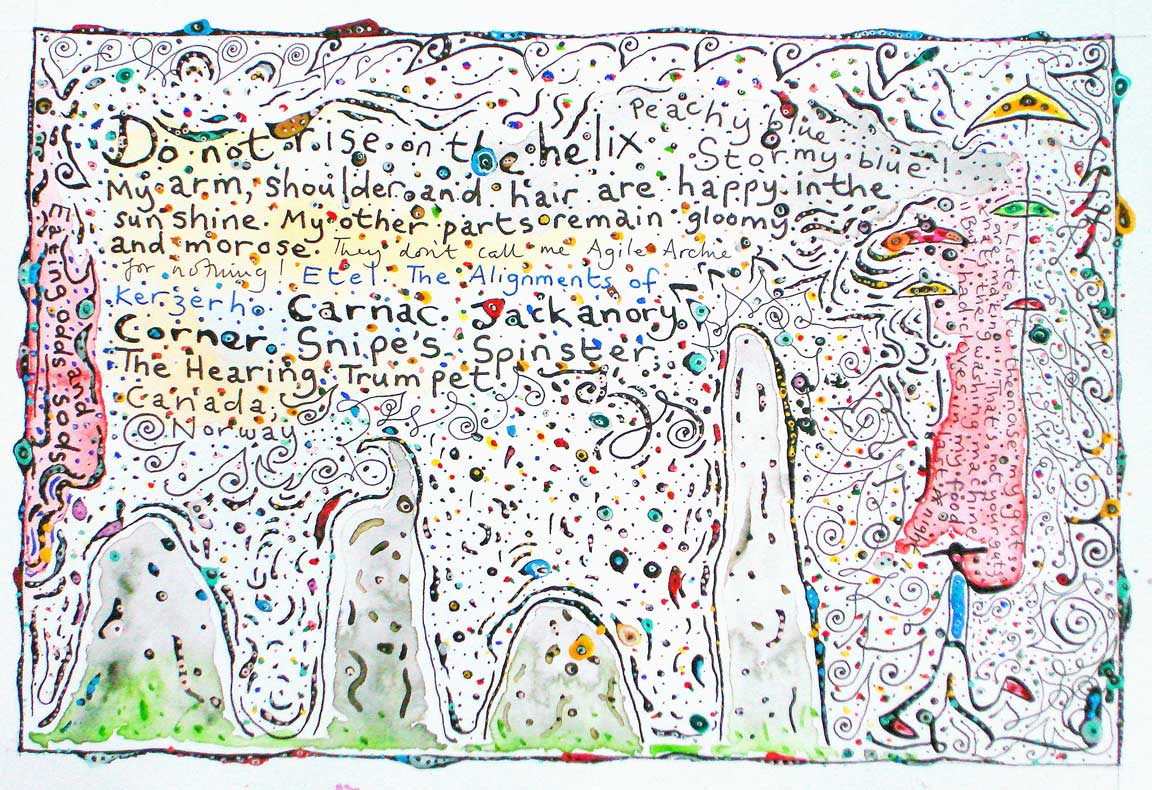 Peachy blue
Stormy blue!
Do not rise on the helix
My arm, shoulder and hair are happy in the
sunshine. My other parts remain gloomy
and morose. They don't call me Agile Archie
for nothing! Etel. The Alignments of
Kerzerho. Carnac. Jackanory.
Corner. Snipe's Spinster.
The Hearing Trumpet.
Canada,
Norway
Eating odds and Sods
washing machine
my food